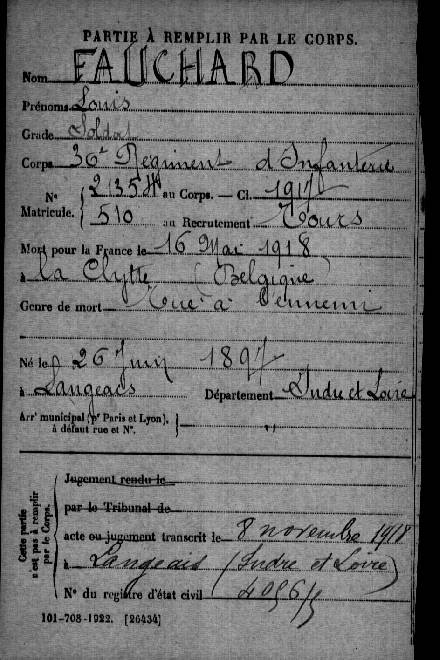 PARTIE À REMPLIR PAR LE CORPS.
Nom FAUCHARD
Prénoms Louis
Grade Soldat
Corps 36e Régiment d'Infanterie
N° Matricule. { 21354 au Corps. — Cl. 1917
510 au Recrutement Tours
Mort pour la France le 16 Mai 1918
à la Clytte (Belgique)
Genre de mort Tué à l'ennemi
Né le 26 Juin 1897
à Langeais Département Indre et Loire
Arrt municipal (pr Paris et Lyon), à défaut rue et N°. }
Cette partie n'est pas à remplir par le Corps.
Jugement rendu le
par le Tribunal de
acte ou jugement transcrit le 8 novembre 1918
à Langeais (Indre et Loire)
N° du registre d'état civil
101-708-1922. [26434]